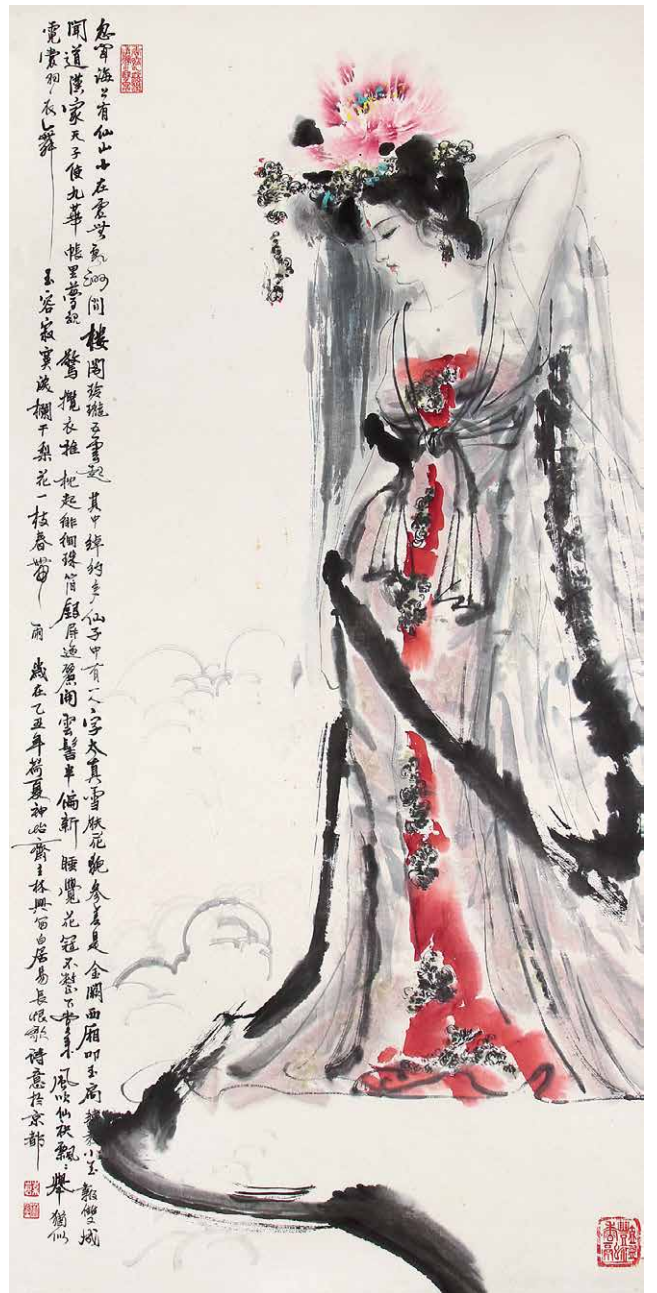 忽闻海上有仙山山在虛無缈間樓閣玲瓏五雲起其中綽約多仙子中有一人字太真雪肤花貌參差是金闕西厢叩玉扃轉教小玉報雙成
聞道漢家天子使九華帳里夢魂驚攬衣推枕起徘徊珠箔銀屏迤邐開雲髻半偏新睡覺花冠不整下堂來風吹仙袂飄飄舉猶似
霓裳羽衣舞玉容寂寞淚欄干梨花一枝春帶雨歲在乙丑年荷夏神齋主林興白居易長恨歌詩意於京都